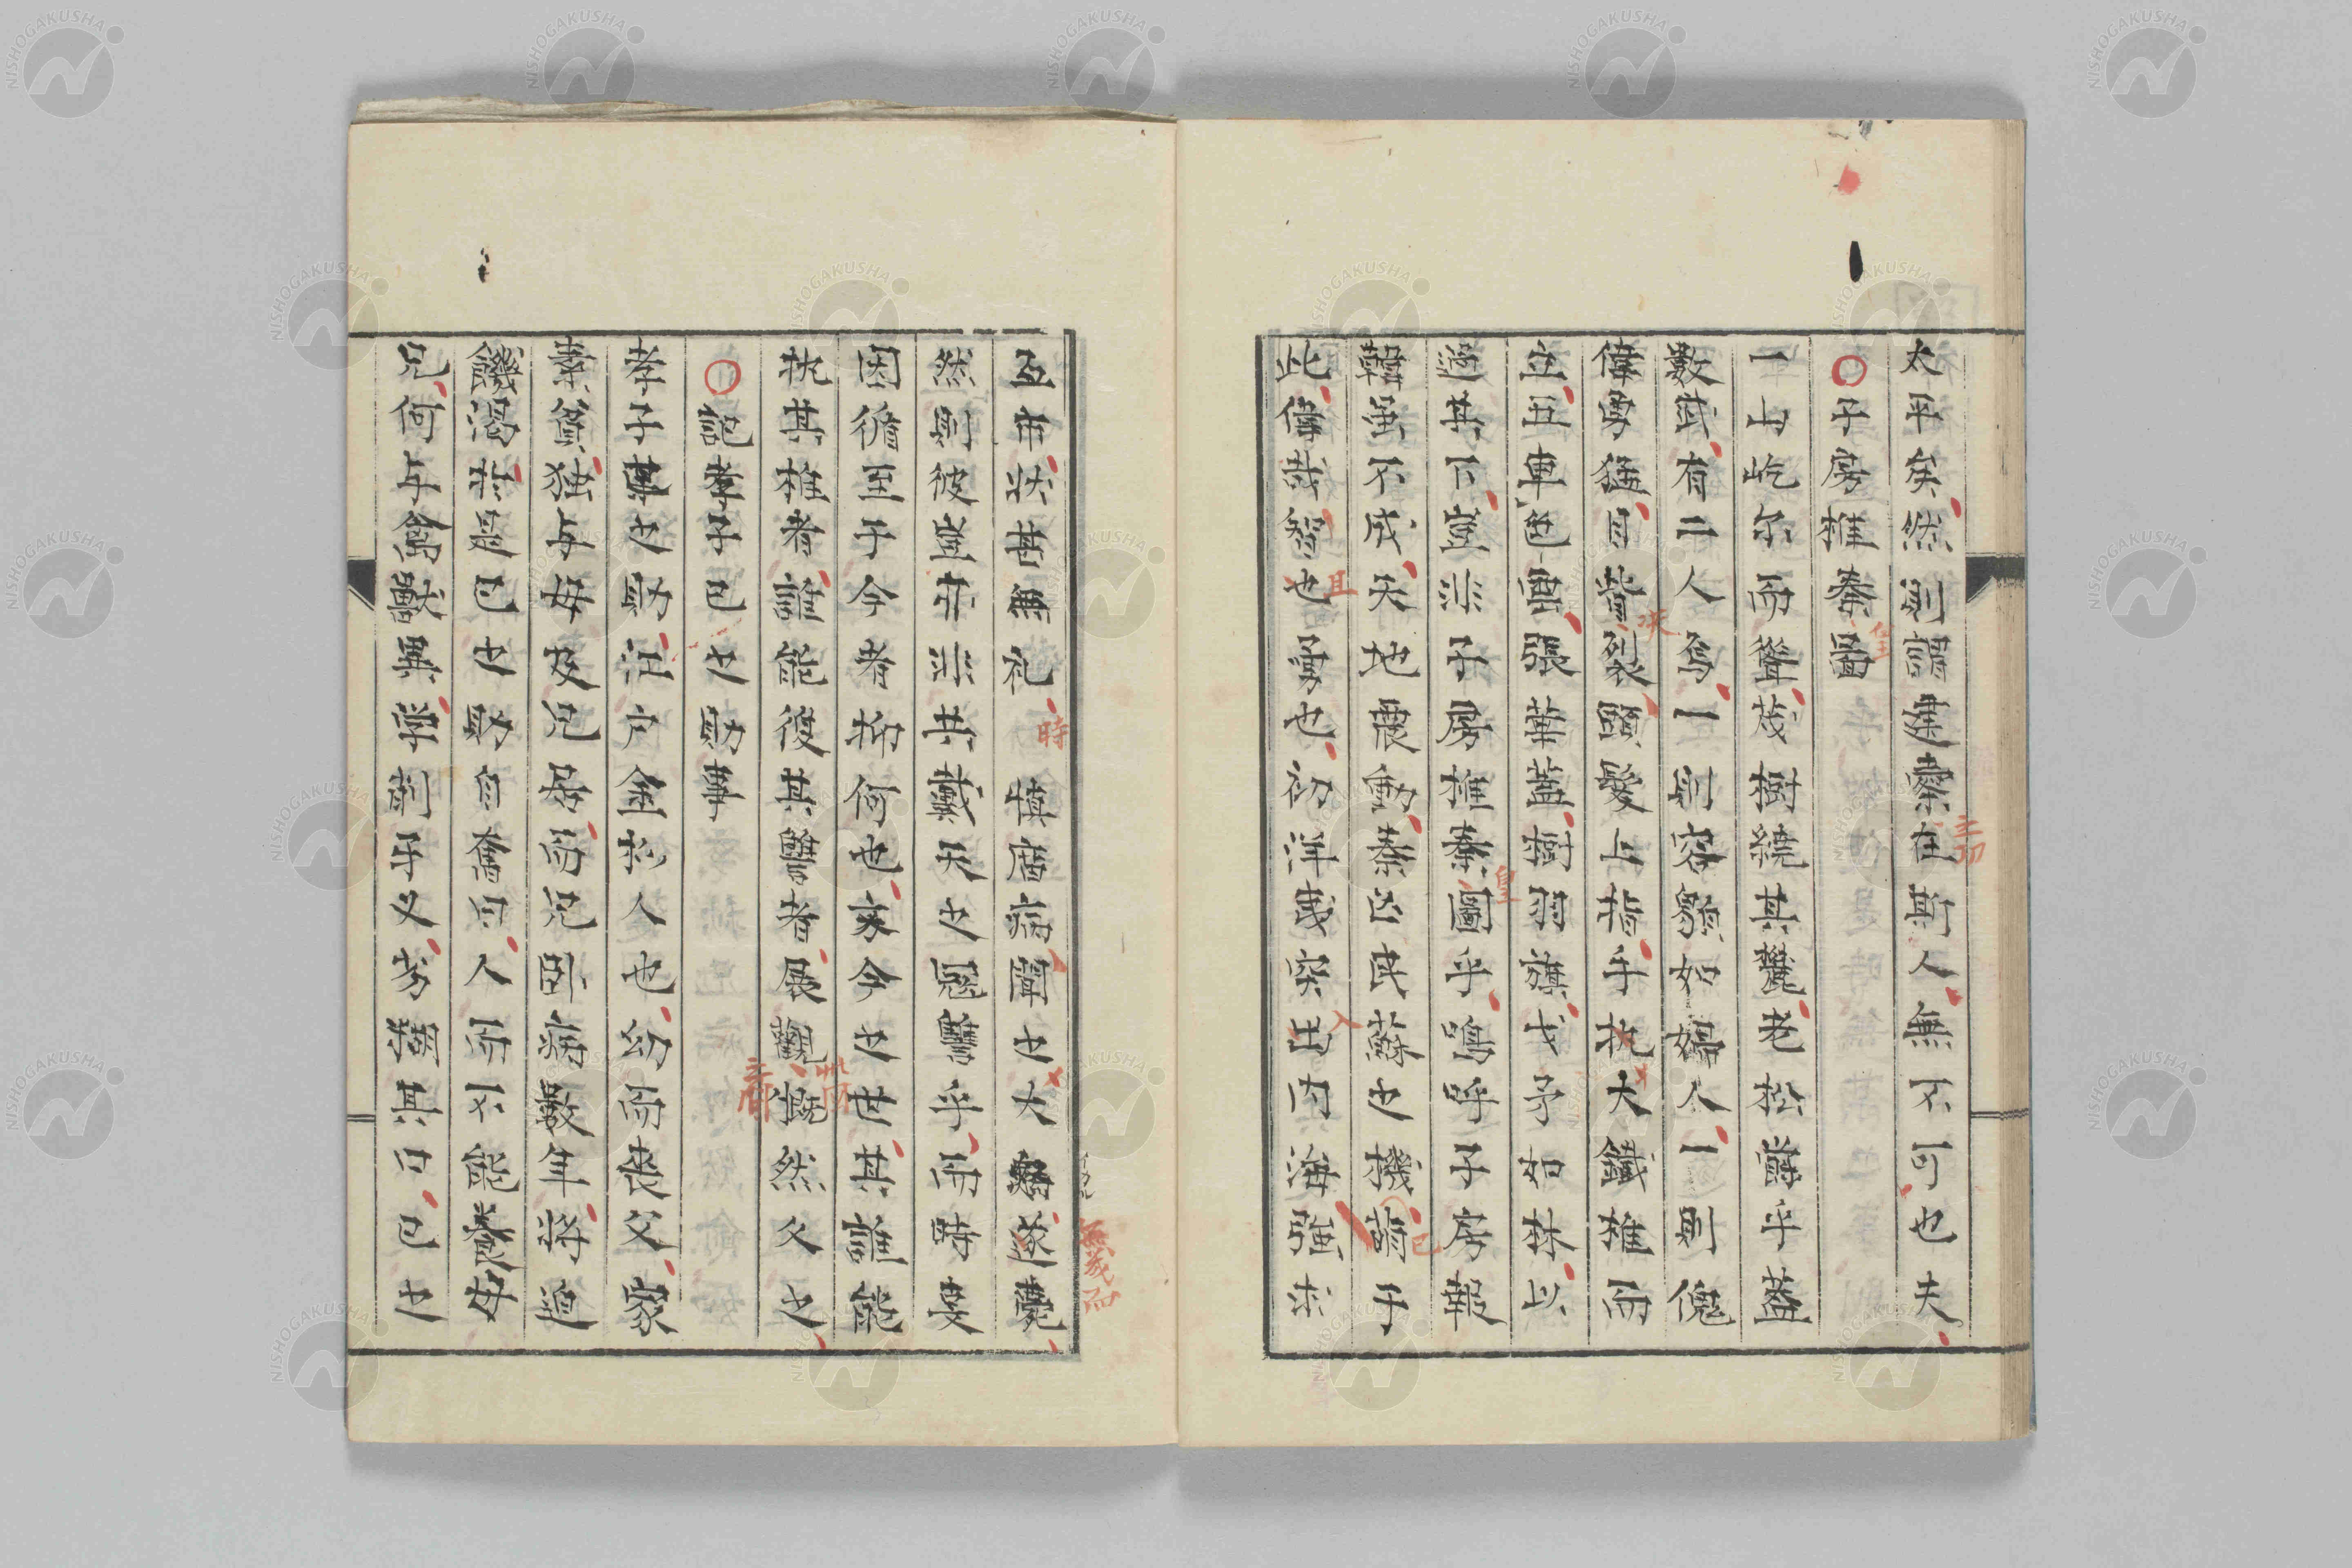 太平矣然則謂建櫜由斯人無不可也夫
子房椎秦圖
一山屹尓而聳茂樹繞其麓老松蔚乎蓋
數武有二人焉一則容貌如婦人一則傀
偉勇猛目眥裂鬚髮上指手扰大鐵椎而
立五車四馬張華蓋樹羽旗戈矛如林以
過其下豈非子房椎秦圖乎嗚呼子房報
韓雖不成天地震動秦民蘇之機萌于
此偉哉智也勇也初洋我突出内海強求
互市狀甚無礼
時
慎癈病聞之大
然則彼豈非共戴天之冦讐乎而時變
因循至于今者抑何也求今之世其誰能
扰其椎者誰能復其讐者展觀慨然父之
記孝子巳之助事
孝子巳之助江戸金杉人也幼而喪父家
素貧独与母及兄居而兄臥病數年將迫
饑渇於是巳之助自奮曰人而不能養母
兄何与禽獸異学剞乎又剪糊其口巳之
皇
無幾而
NISHOGAKUSHA